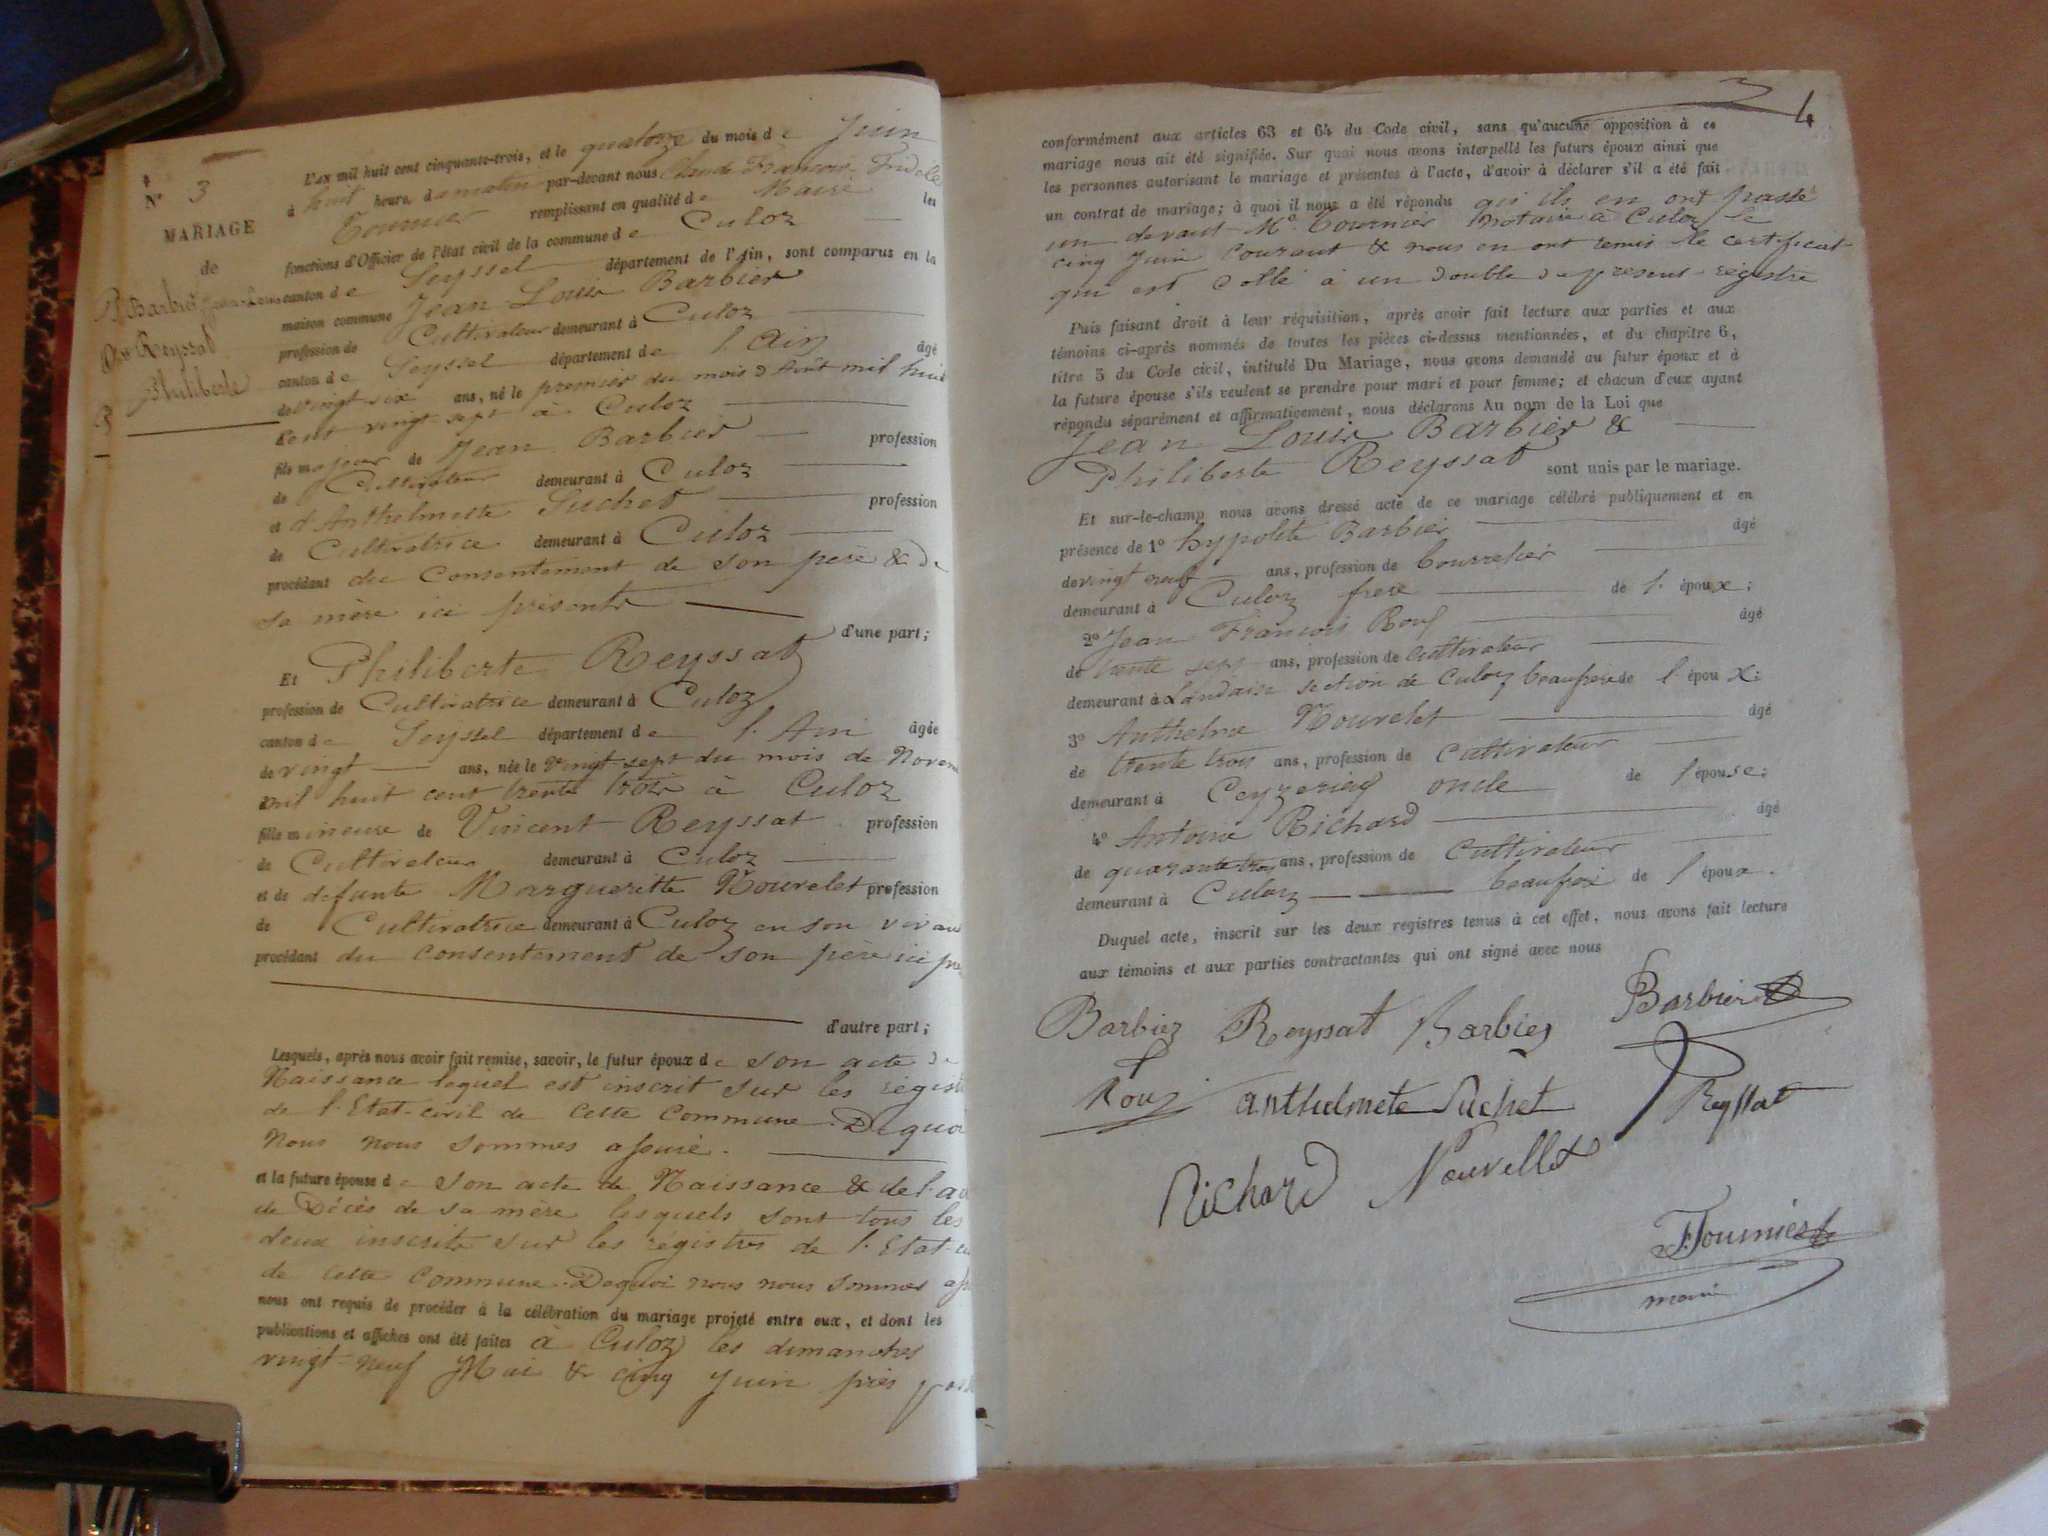 N° 3
MARIAGE
de
Barbier Jean Louis
Reyssat
Philiberte
L'an mil huit cent cinquante-trois, et le quatorze du mois de Juin
à huit heure, du matin par-devant nous Claude François Fidele
remplissant en qualité de Maire les
fonctions d'Officier de l'état civil de la commune de Culoz
canton de Seyssel département de l'Ain, sont comparus en la
maison commune Jean Louis Barbier
profession de Cultivateur demeurant à Culoz
canton de Seyssel département de l'Ain âgé
de vingt six ans, né le premier du mois d'Août mil huit
cent vingt sept à Culoz
fils majeur de Jean Barbier profession
de Cultivateur demeurant à Culoz
et d'Anthelmette Suchet profession
de Cultivatrice demeurant à Culoz
procédant du consentement de son père & de
sa mère ici présents
d'une part;
Et Philiberte Reyssat
profession de Cultivatrice demeurant à Culoz
canton de Seyssel département de l'Ain âgée
de vingt ans, née le vingt-sept du mois de Novem
mil huit cent trente trois à Culoz
fille mineure de Vincent Reyssat profession
de Cultivateur demeurant à Culoz
et de défunte Marguerite Nouvelet profession
de Cultivatrice demeurant à Culoz en son vivan
procédant du consentement de son père ici pré
d'autre part;
Lesquels, après nous avoir fait remise, savoir, le futur époux de son acte de
Naissance lequel est inscrit sur les régist
de l'Etat-civil de cette Commune. De quoi
nous nous sommes assuré.
et la future épouse de son acte de Naissance & de l'ac
de Décès de sa mère lesquels sont tous les
deux inscrits sur les régistres de l'Etat-ci
de cette commune. De quoi nous nous sommes ass
nous ont requis de procéder à la célébration du mariage projeté entre eux, et dont les
publications et affiches ont été faites à Culoz les dimanches
vingt-neuf Mai & cinq Juin
4
conformément aux articles 63 et 64 du Code civil, sans qu'aucune opposition à ce
mariage nous ait été signifiée. Sur quoi nous avons interpellé les futurs époux ainsi que
les personnes autorisant le mariage et présentes à l'acte, d'avoir à déclarer s'il a été fait
un contrat de mariage; à quoi il nous a été répondu qu'ils en ont passé
un devant Me Fournier Notaire à Culoz le
cinq Juin Courant & nous en ont remis le certificat
qui est collé à un double du présent régistre
Puis faisant droit à leur réquisition, après avoir fait lecture aux parties et aux
témoins ci-après nommés de toutes les pièces ci-dessus mentionnées, et du chapitre 6,
titre 5 du Code civil, intitulé Du Mariage, nous avons demandé au futur époux et à
la future épouse s'ils veulent se prendre pour mari et pour femme; et chacun d'eux ayant
répondu séparément et affirmativement, nous déclarons Au nom de la Loi que
Jean Louis Barbier &
Philiberte Reyssat sont unis par le mariage.
Et sur-le-champ nous avons dressé acte de ce mariage célébré publiquement et en
présence de 1° hypolite Barbier âgé
de vingt neuf ans, profession de bourrelier
demeurant à Culoz frère de l'époux;
2° Jean François Roux âgé
de trente sept ans, profession de cultivateur
demeurant à Landaise section de Culoz beaufrère de l'époux;
3° Anthelme Nouvelet âgé
de trente trois ans, profession de cultivateur
demeurant à Ceyzerieu oncle de l'épouse;
4° Antoine Richard âgé
de quarante trois ans, profession de Cultivateur
demeurant à Culoz beaufrère de l'époux.
Duquel acte, inscrit sur les deux registres tenus à cet effet, nous avons fait lecture
aux témoins et aux parties contractantes qui ont signé avec nous
Barbier Reyssat Barbier Barbier
Roux anthelmete Suchet Reyssat
Richard Nouvellet
Fournier
maire